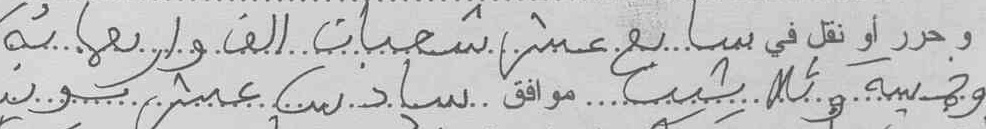 و حرر أو نقل في سابع عشر شعبان الف واربعمائة
وخمسة وثلاثين موافق سادس عشر